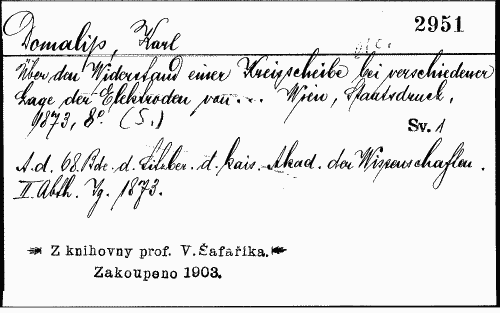 2951
Domalíp, Karl
Über den Widerstand einer Kreisscheibe bei verschiedener
Lage der Elektroden von ... Wien, Staatsdruck.
1873, 8° (S.)
Sv. 1
A. d. 68. Bde. d. Sitzber. d. kais. Akad. der Wissenschaften.
II. Abth. Jg. 1873.
Z knihovny prof. V. Šafaříka.
Zakoupeno 1903.